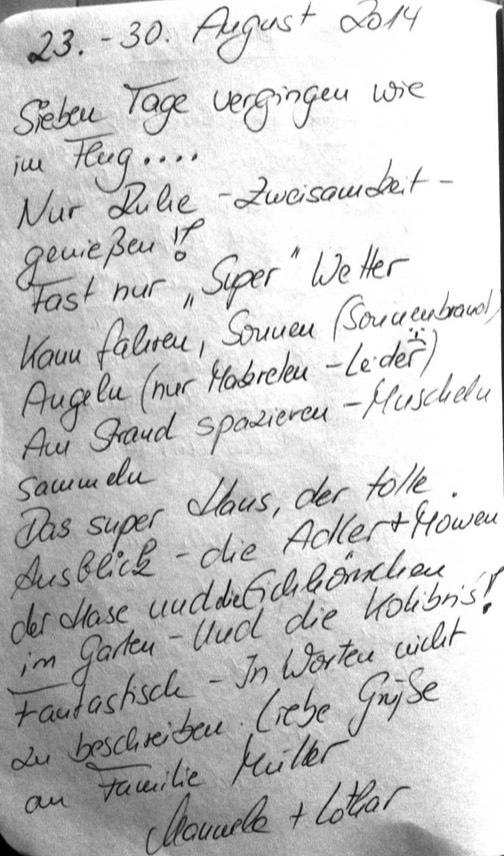 23. - 30. August 2014
Sieben Tage vergingen wie
im Flug....
Nur Ruhe - Zweisamkeit -
genießen!!
Fast nur „Super" Wetter
Kanu fahren, Sonnen (Sonnenbrand)
Angeln (nur Makrelen - Leider)
Am Strand spazieren - Muscheln
sammeln
Das super Haus, der tolle
Ausblick - die Adler + Möwen
der Hase und die Eichhörnchen
im Garten - Und die Kolibris!
Fantastisch - In Worten nicht
zu beschreiben. Liebe Grüße
an Familie Müller
Manuela + Lothar